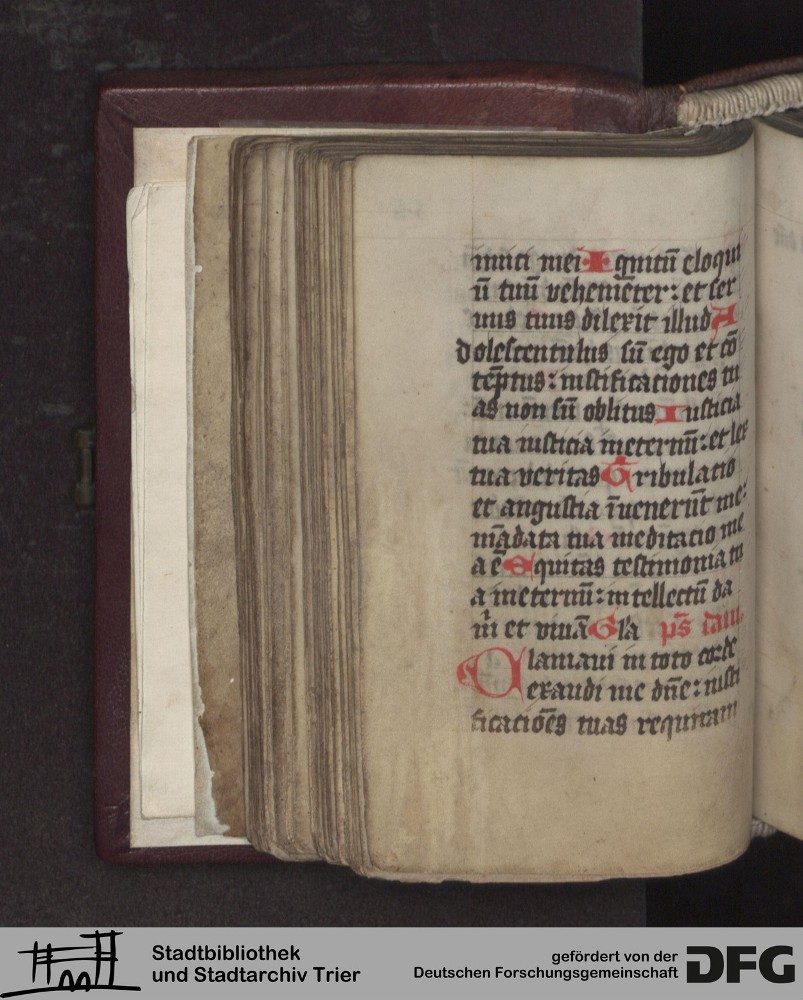 imici mei Ignitū eloqui
ū tuū vehemēter: et ser
uus tuus dilexit illud A
dolescentulus sū ego et cō
tēptus: iustificationes tu
as non sū oblitus Iusticia
tua iusticia ineternū: et lex
tua veritas Tribulatio
et angustia īuenerūt me:
mādata tua meditacio me
a ē Equitas testimonia tu
a ineternū: intellectū da
m̄ et viuā Gła p̄s dauid
Clamaui in toto corde
exaudi me dn̄e: iusti
ficatiōes tuas requiram
Stadtbibliothek
und Stadtarchiv Trier
gefördert von der
Deutschen Forschungsgemeinschaft
DFG